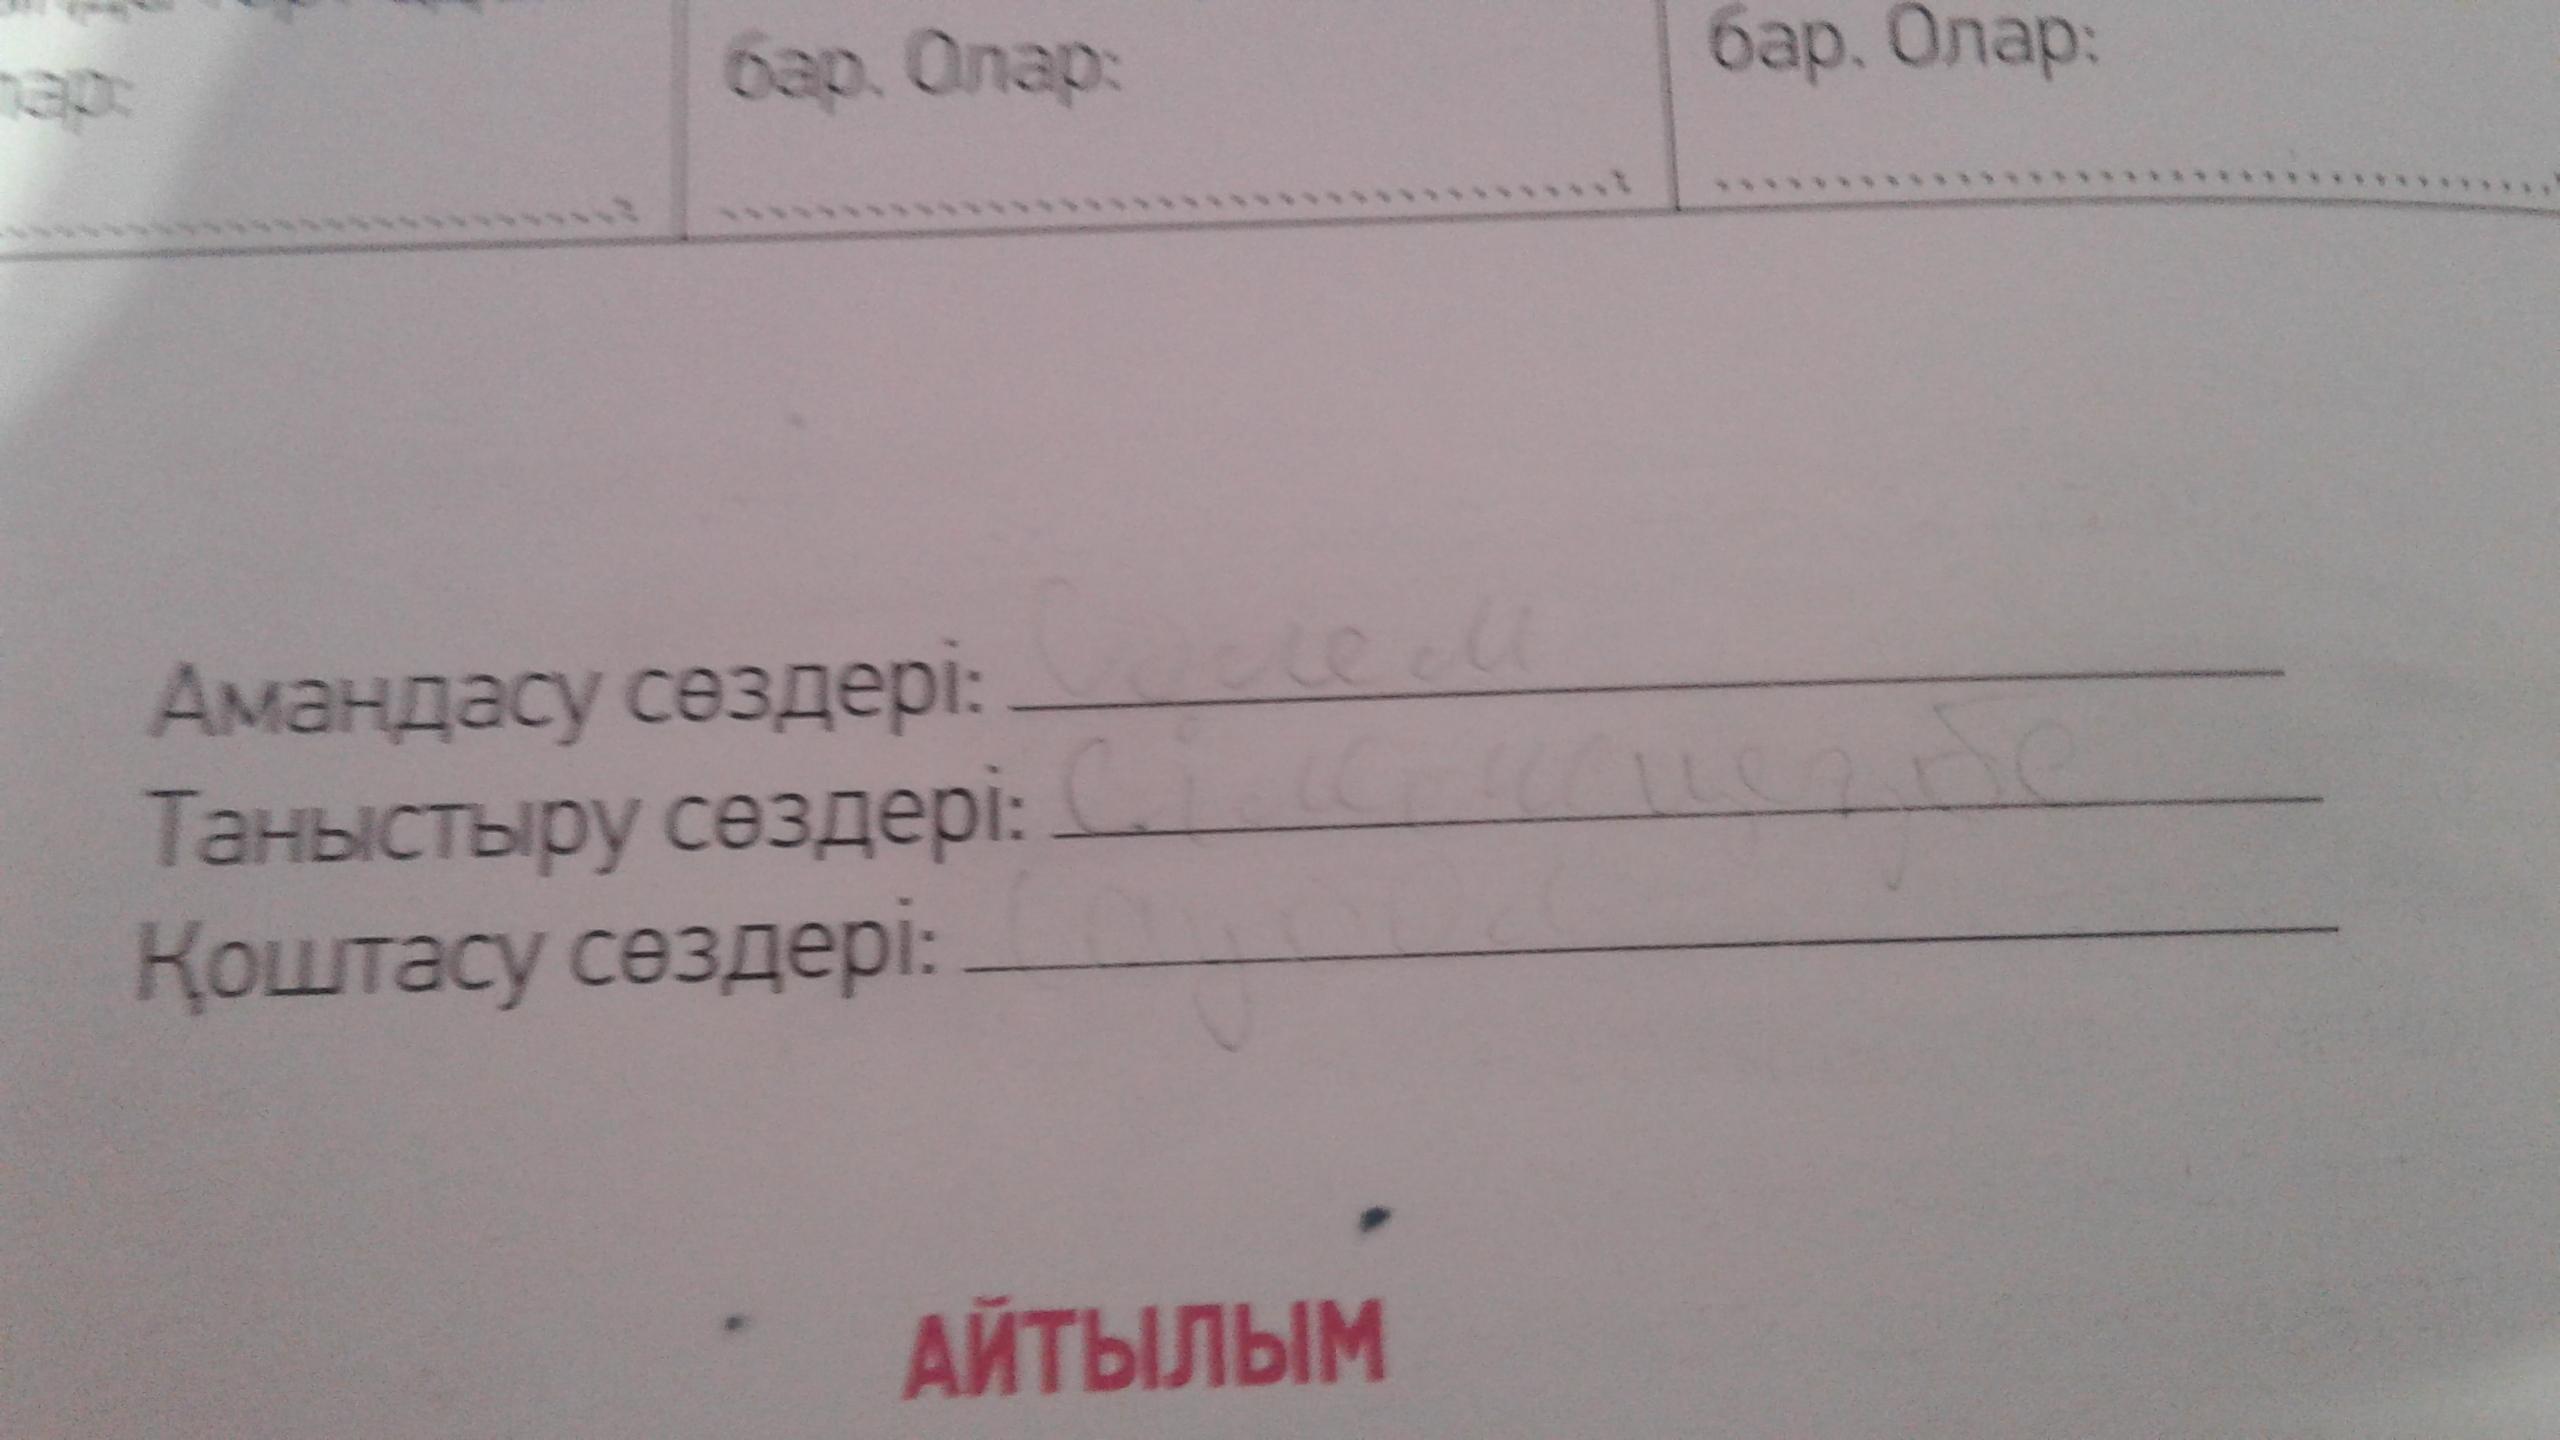 лар:
бар. Олар:
бар. Олар:
Амандасу сөздері: Сәлем
Таныстыру сөздері:
Қоштасу сөздері:
АЙТЫЛЫМ